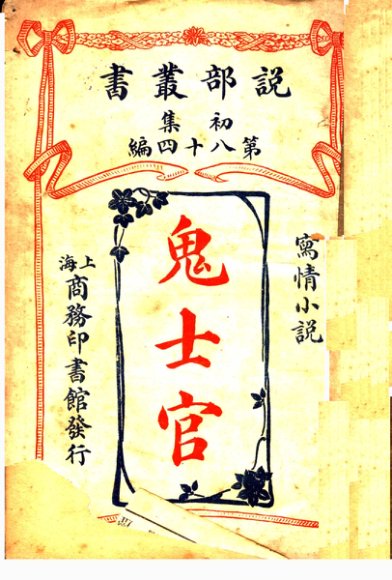 説部叢書
初集
第八十四編
寫情小説
鬼士官
上海
商務印書館發行